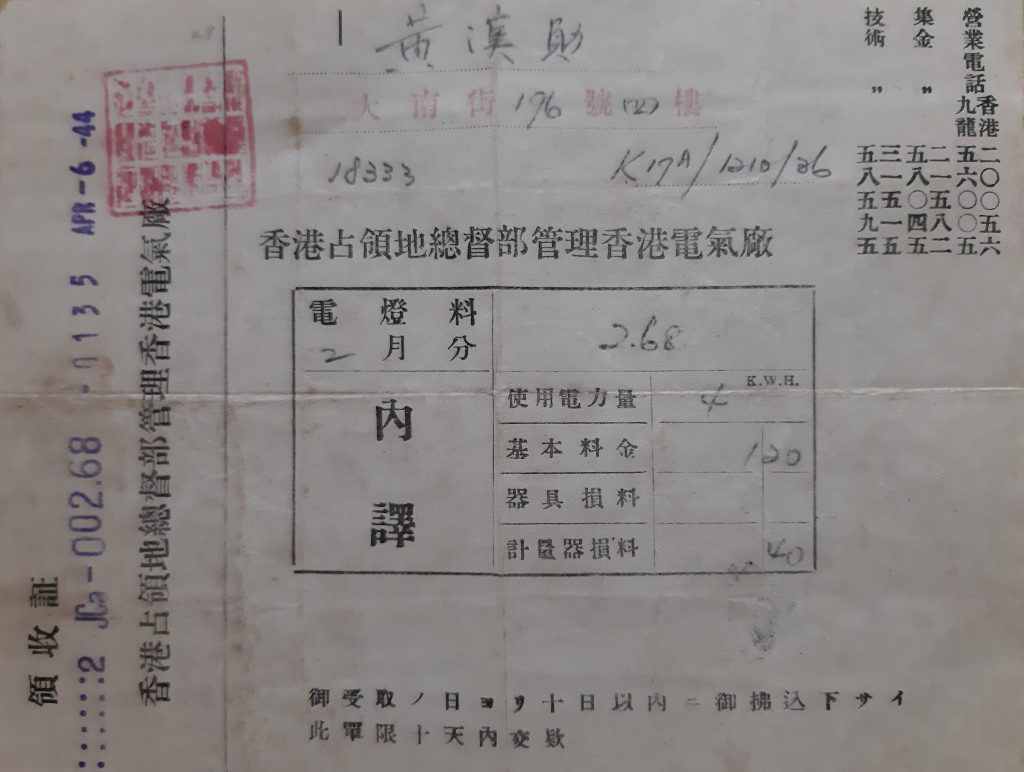 黃漢
大南街196號四樓
18333
K17A/1210/36
營業電話 香港 二〇〇五六
九龍 五六〇〇五
集金 〃 二一五八二
五八〇四五
技術 〃 三一五一五
五八五九五
香港占領地總督部管理香港電氣廠
電燈料
2月分
2.68
內譯
使用電力量 4 K.W.H.
基本料金 120
器具損料
計量器損料 40
御受取ノ日ヨリ十日以內ニ御拂込下サイ
此單限十天內交欵
香港占領地總督部管理香港電氣廠
領收証
2 JCa-002.68 -0135 APR-6-44